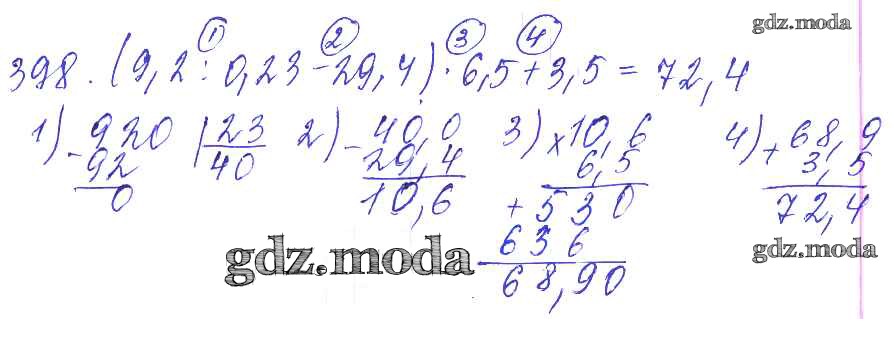 gdz.moda
1 2 3 4
398. (9,2 : 0,23 - 29,4) · 6,5 + 3,5 = 72,4
1) 920 | 23 2) - 40,0 3) × 10,6 4) + 68,9
- 92 40 29,4 6,5 3,5
0 10,6 + 530 72,4
636
gdz.moda gdz.moda
68,90